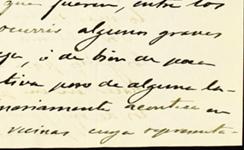 que fueren, entre los
ocurrir algunos graves
, ó de bien de poca
tiva pero de alguna la-
mariamente acontece en
vecinas cuya representa-